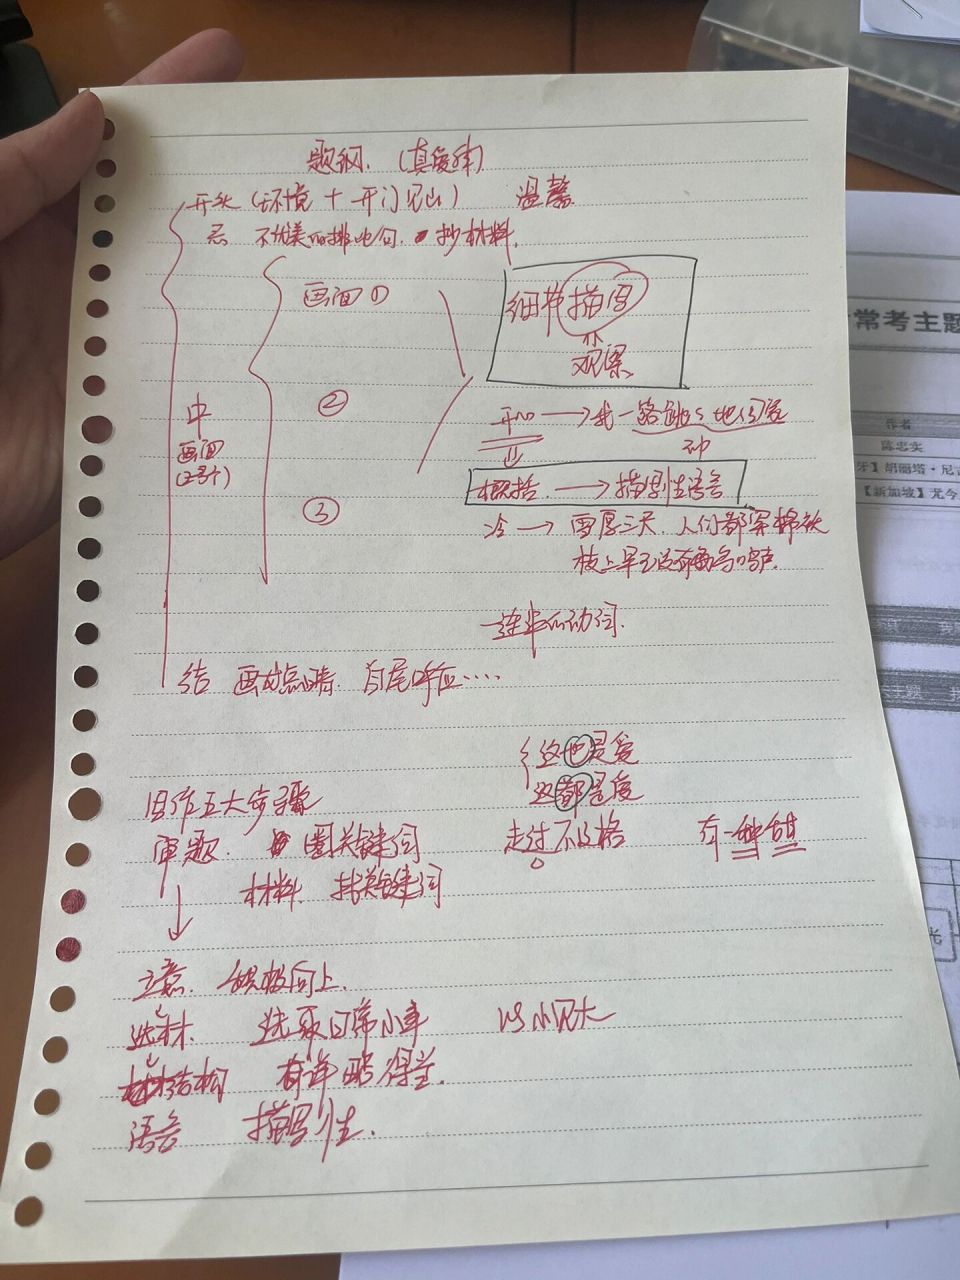 题纲. (真爱牌)
开头 (环境 + 开门见山) 温馨
忌 不优美的排比句. 抄材料.
画面①
细节描写
观察
②
开心 → 我一路跳
中
画面
(2-3个)
概括. → 描写性语言
③
冷 → 雪厚三天. 人们都穿棉袄
枝上早已没有鸟鸣声.
一连串的动词.
结 画龙点睛. 首尾呼应....
这也是爱
这都是爱
写作五大步骤
审题. 圈关键词 走过不及格 有一种甜
材料. 找关键词
立意. 积极向上.
选材. 选取日常小事 以小见大
结构 有详略得当.
语言 描写性.
常考主题
作者
陈忠实
牙】胡丽塔·尼
【新加坡】尤今
主题
光